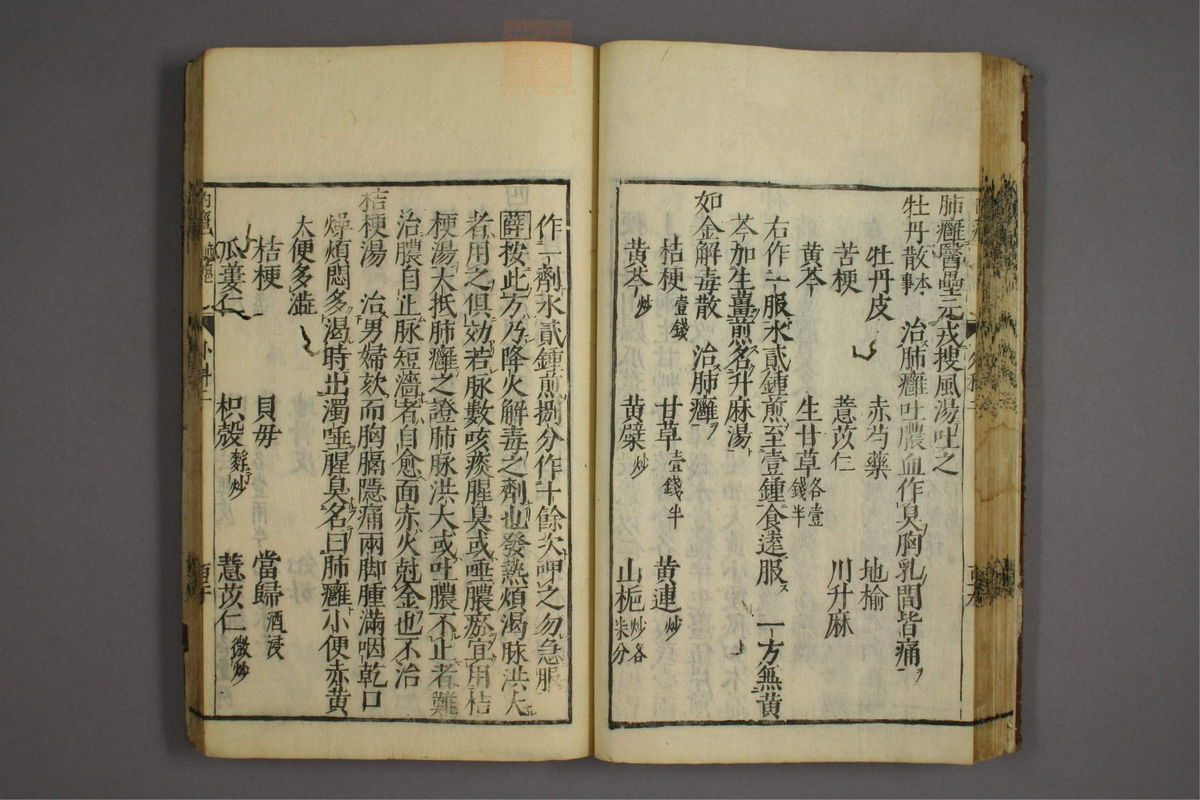 肺癰醫壘元戎搜風湯吐之
牡丹散本事 治肺癰吐膿血作臭胸乳間皆痛
牡丹皮 赤芍藥 地榆
苦梗 薏苡仁 川升麻
黃芩 生甘草各壹錢半
右作一服水貳鍾煎至壹鍾食遠服 一方無黃
芩加生薑煎名升麻湯
如金解毒散 治肺癰
桔梗壹錢 甘草壹錢半 黃連炒
黃芩炒 黃蘗炒 山梔炒各柒分
作一劑水貳鍾煎捌分作十餘次呷之勿急服
薛按此方乃降火解毒之劑也發熱煩渴脉洪大
者用之俱効若脉數咳痰腥臭或唾膿瘀宜用桔
梗湯大抵肺癰之證肺脉洪大或吐膿不止者難
治膿自止脉短濇者自愈面赤火尅金也不治
桔梗湯 治男婦欬而胸膈隱痛兩脚腫滿咽乾口
燥煩悶多渴時出濁唾腥臭名曰肺癰小便赤黃
大便多澁
桔梗 貝毋 當歸酒浸
瓜蔞仁 枳殼麩炒 薏苡仁微炒